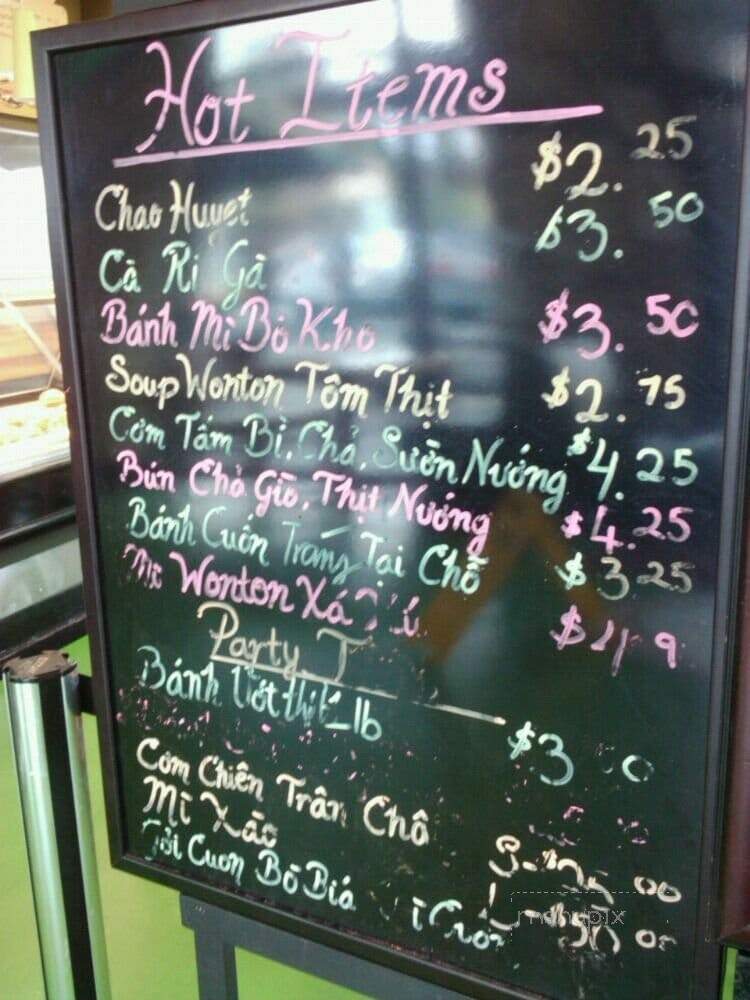 Hot Items
Chao Huyet $2.25
Cà Ri Gà $3.50
Bánh Mì Bò Kho $3.50
Soup Wonton Tôm Thịt $2.75
Cơm Tấm Bì, Chả, Sườn Nướng $4.25
Bún Chả Giò, Thịt Nướng $4.25
Bánh Cuốn Tráng Tại Chỗ $3.25
Mì Wonton Xá
Party
Bánh Ướt thịt lb $3
Cơm Chiên Trân Châ
Mì Xào 00
Gỏi Cuon Bò Bía
menupix